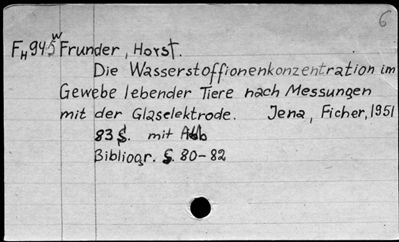 6
W
FH945 Frunder, Horst.
Die Wasserstoffionenkonzentration im
Gewebe lebender Tiere nach Messungen
mit der Glaselektrode. Jena, Ficher, 1951
83 S. mit Abb
Bibliogr. S. 80-82